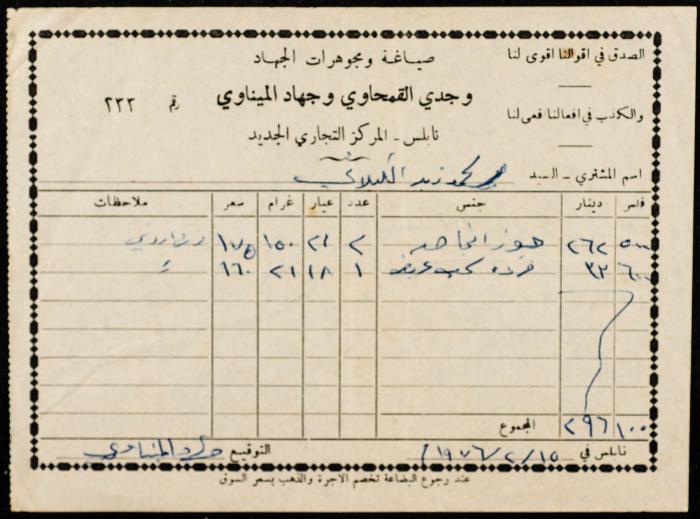 صياغة ومجوهرات الجهاد
وجدي القمحاوي وجهاد الميناوي
نابلس - المركز التجاري الجديد
رقم ٢٣٢
الصدق في اقوالنا اقوى لنا
والكذب في افعالنا فعى لنا
اسم المشتري - السيد محمد زيد الكيلاني
فلس دينار جنس عدد عيار غرام سعر ملاحظات
٥٠٠ ٢٦٢ جوز ٢ ٢١ ١٥٠ ١٧٥
٦٠٠ ٣٣ فرده كعب عريض ١ ١٨ ٢١ ١٦٠
١٠٠ ٢٩٦ المجموع
نابلس في ١٥/٢/١٩٧٦ التوقيع جهاد الميناوي
عند رجوع البضاعة تخصم الاجرة والذهب بسعر السوق